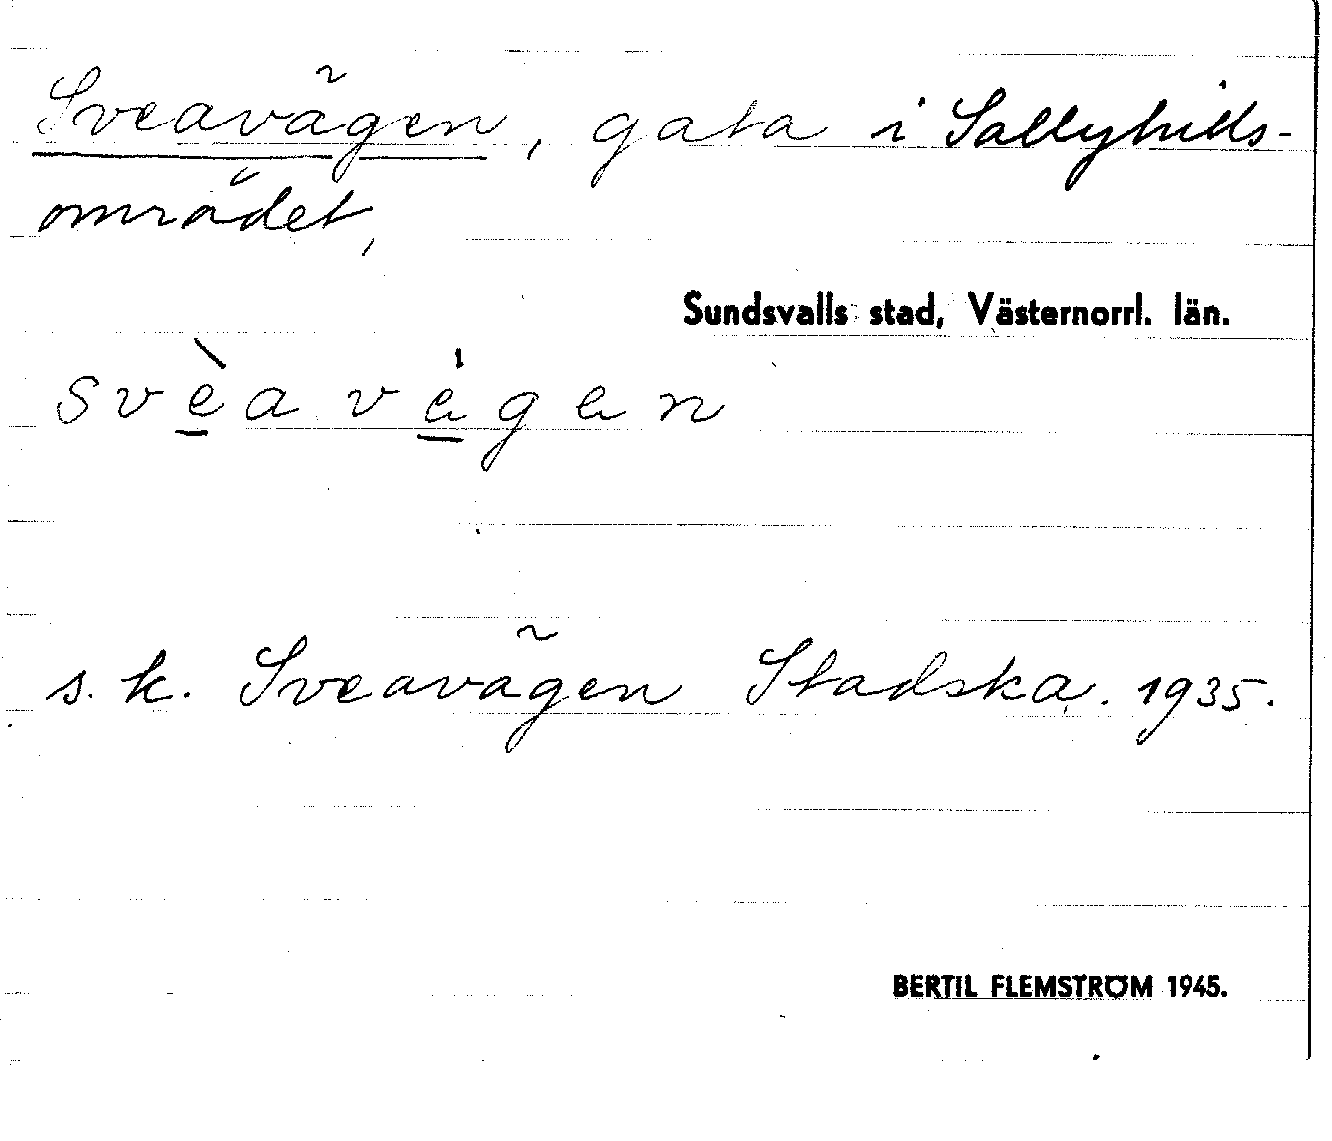 Sveavägen, gata i Sallyhills-
området,
Sundsvalls stad, Västernorrl. län.
svèavégen
s.k. Sveavägen Stadska. 1935.
BERTIL FLEMSTRÖM 1945.